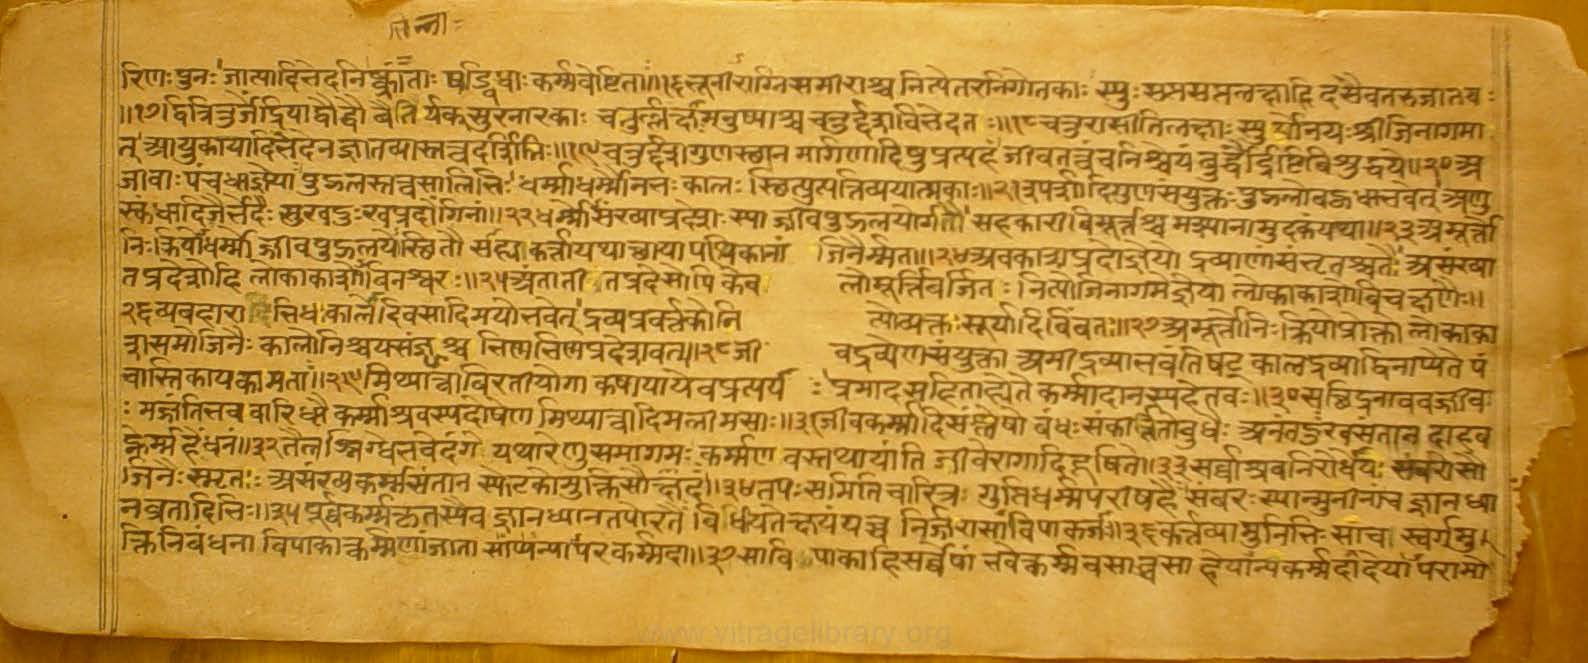 रिणः पुनः जात्यादिभेदनिष्क्रांताः षड्विधाः कर्म्मवेष्टिताः॥१६भूनीराग्निसमीराश्च नित्येतरनिगोतकाः स्युः सप्तसप्तलक्षाहि दसैवतरुजातयः
॥१७द्वित्रितुर्जेंद्रियाद्वौद्वौ वैतिर्यक्सुरनारकाः चतुर्लक्षमनुष्याश्च चतुर्द्दशविभेदतः॥१८चतुरासीतिलक्षाः स्युर्योनयः श्रीजिनागमा
त् आयुकायादिभेदेन ज्ञातव्यास्तत्वदर्शिभिः॥१९चतुर्द्दशगुणस्थान मार्गणादिषुप्रत्यहं जीवतत्वंचनिश्चेयं बुद्धैर्द्रिष्टिविशुद्धये॥२०अ
जीवाः पंचधाज्ञेया पुद्गलस्तत्वसालिभिः धर्म्माधर्म्मौनभः कालः स्थित्युत्पत्तिव्ययात्मकाः॥२१स्पर्शादिगुणसंयुक्तः पुद्गलोबहुधाभवेत् अणु
स्कंधादिजैर्भेदैः सुखदुःखप्रदोगिनां॥२२धर्म्मोसंख्याप्रदेशः स्या ज्जीवपुद्गलयोर्गतौ सहकारीविमूर्त्तश्च मत्स्यानामुदकंयथा॥२३अमूर्त्तो
निःक्रियोधर्म्मो ज्जीवपुद्गलयोस्थितौ सहाकर्त्तायथाछाया पथिकानां जिनैर्मता॥२४अवकाशप्रदोज्ञेयो द्रव्याणांसंभृतश्चतैः असंख्या
तप्रदेशोहि लोकाकाशोविनश्वरः॥२५अंतातीतप्रदेसोपि केव लोमूर्त्तिवर्जितः नित्योजिनागमेज्ञेयो लोकाकाशोविचक्षणैः॥
२६व्यवहाराभिधःकालो दिवसादिमयोभवेत् द्रव्यप्रवर्त्तकोनि त्योव्यक्तः सूर्यादिबिंबतः॥२७अमूर्त्तोनिःक्रियोप्रोक्तो लोकाका
शसमोजिनैः कालोनिश्चयसंज्ञश्च भिन्नभिन्नप्रदेशवत्॥२८जी वद्रव्येणसंयुक्ता अमीद्रव्याभवंतिषट् कालद्रव्याद्विनाप्येते पं
चास्तिकायकामताः॥२९मिथ्यात्वाविरतीयोगा कषायायेवप्रत्यर्य ः प्रमादसहिताह्येते कर्म्मादानस्यहेतवः॥३०सछिद्रनाववज्जीव
ः मज्जंतिभववारिधौ कर्म्माश्रवस्यदोषेण मिथ्यात्वादिमलीमसाः॥३१जीवकर्म्मादिसंश्लेषो बंधः संकीर्त्तितोबुधैः अनंतदुःखसंतान दाहव
ह्नेर्म्महेंधनं॥३२तैलस्निग्धभवेदंगं यथारेणुसमागमः कर्म्मण वस्तथायांति जीवेरागादिदूषिते॥३३सर्व्वाश्रवनिरोधैयः संवरोसौ
जिनैः स्मृतः असंख्यकर्म्मसंतान स्फेटकोमुक्तिसौख्यदः॥३४तपः समितिचारित्र गुप्तिधर्म्मपरीषहैः संवरः स्यान्मुनीनांच ज्ञानध्या
नव्रतादिभिः॥३५पूर्वकर्म्मकृतस्यैव ज्ञानध्यानतपोरतैः विधीयतेक्षयंयच्च निर्ज्जरासाविपाकजा॥३६कर्त्तव्यामुनिभिः साचा स्वर्गमु
क्तिनिबंधना विपाकात्कर्म्मणांजाता साप्यन्यापरकर्म्मदा॥३७सावि पाकाहिसर्व्वेषां भवेत्कर्म्मवसात्वसा हेयान्यकर्म्मदादेया परामो